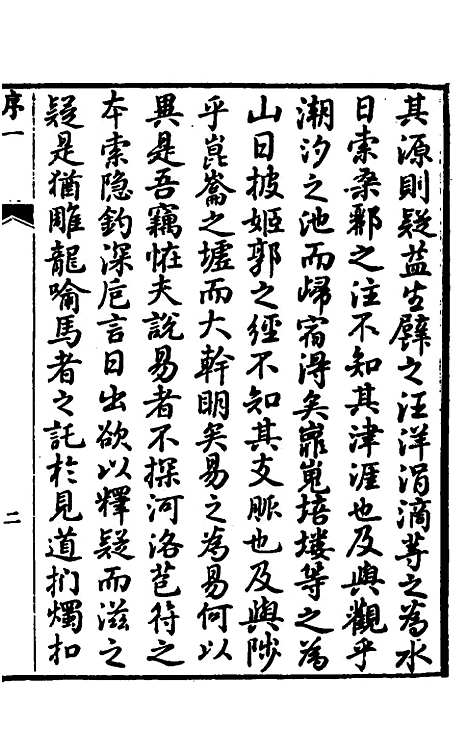 其源則疑益生譬之汪洋涓滴等之為水
日索桑酈之注不知其津涯也及與觀乎
潮汐之池而歸宿淂矣嵬嵬培塿等之為
山日披姬郭之經不知其支脈也及與陟
乎崑崙之墟而大幹明矣易之為易何以
異是吾竊恠夫說易者不探河洛苞符之
本索隐鈎深巵言日出欲以釋疑而滋之
疑是猶雕龍喻馬者之託於見道捫燭扣
序一
二